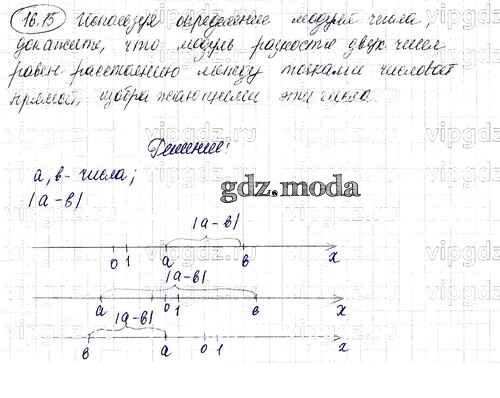 16.15 Используя определение модуля числа,
докажите, что модуль разности двух чисел
равен расстоянию между точками числовой
прямой, изображающими эти числа.
Решение:
а, в - числа;
|а-в|
gdz.moda
|а-в|
0 1 а в x
|а-в|
а 0 1 в x
|а-в|
в а 0 1 x
vipgdz.ru